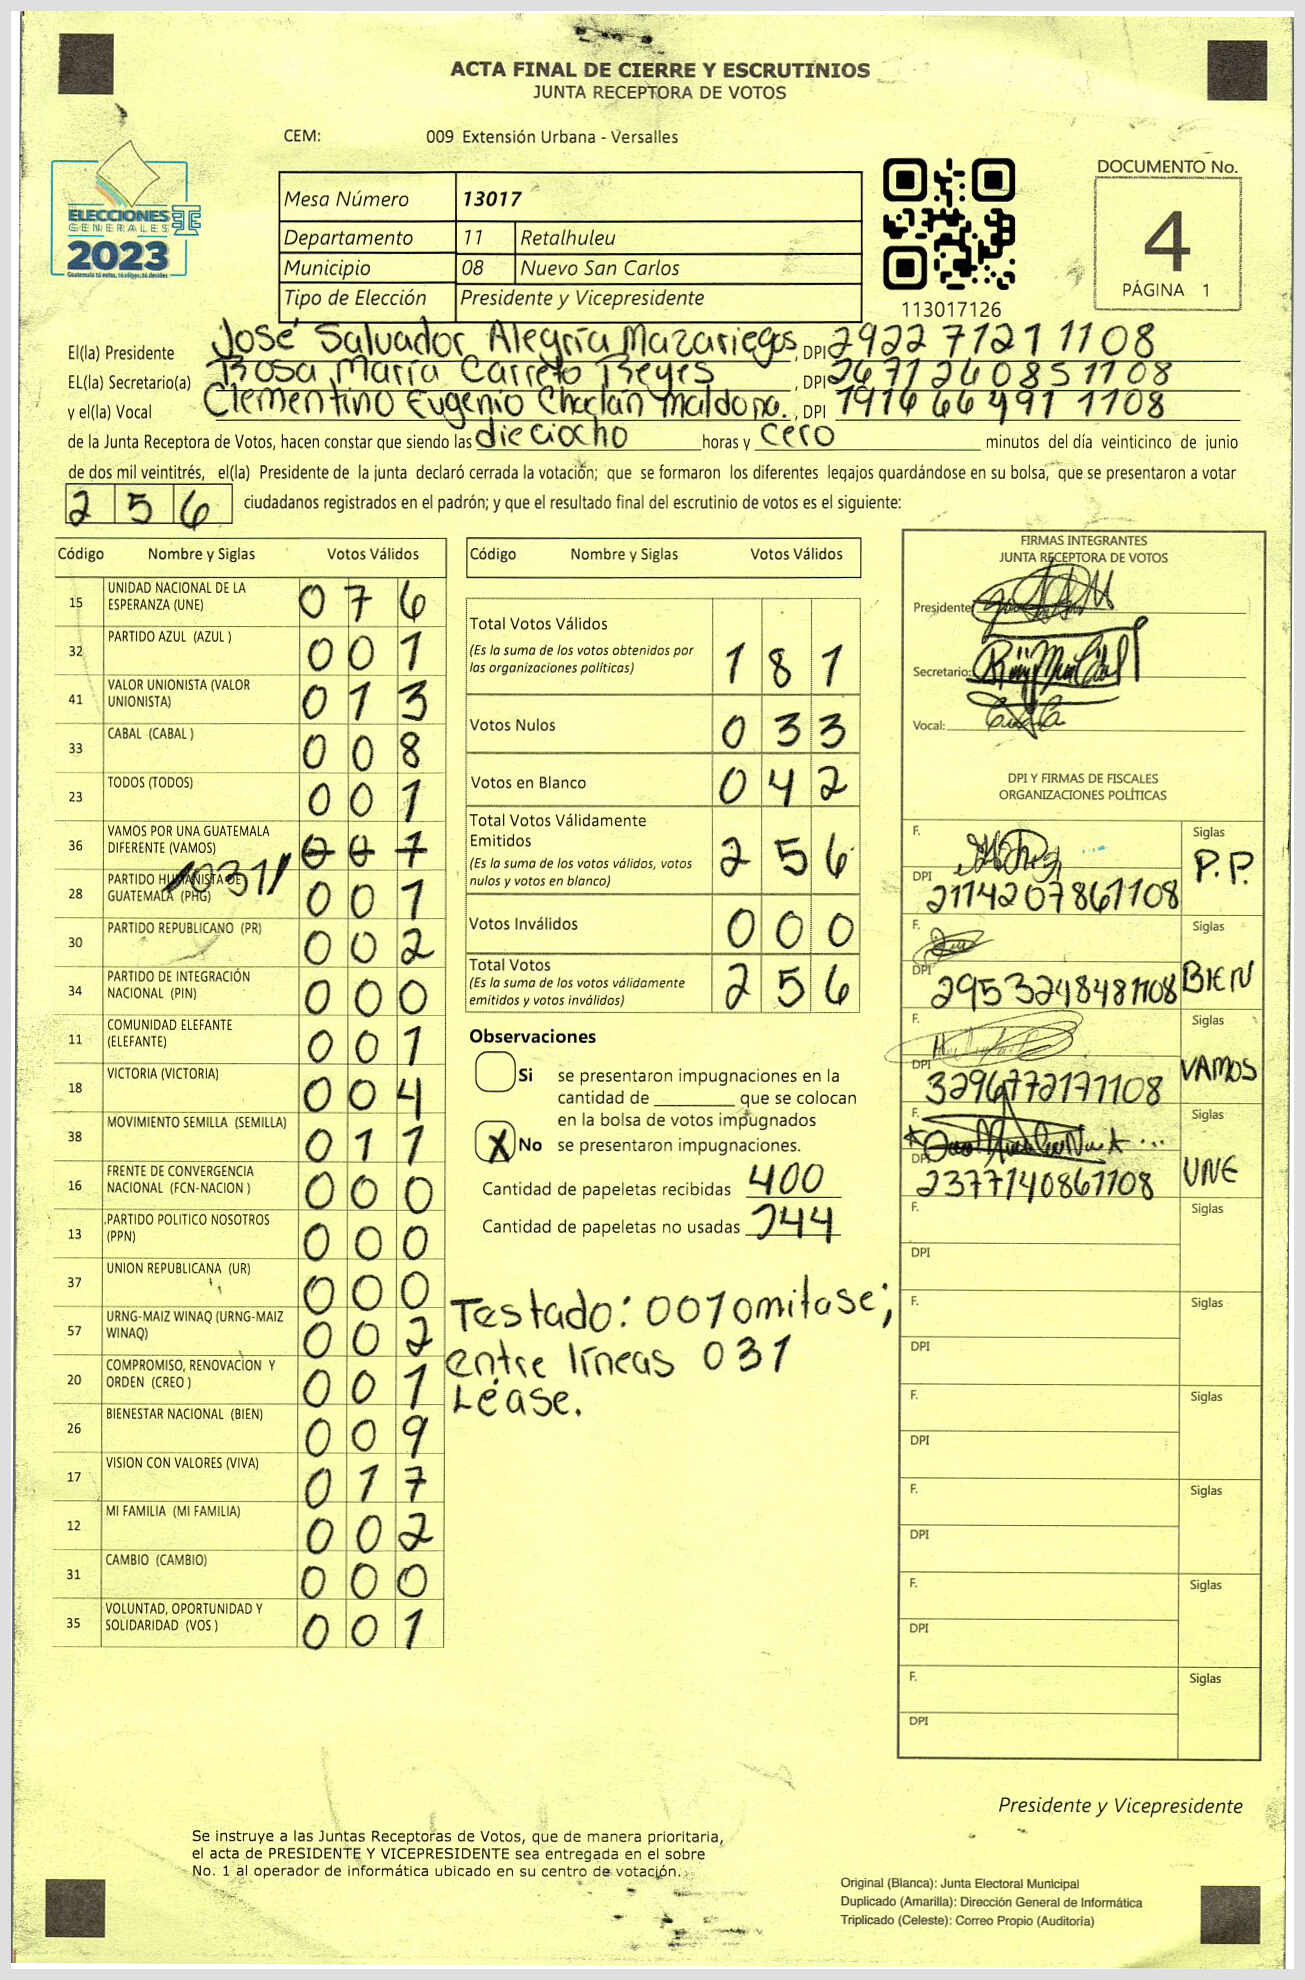 ACTA FINAL DE CIERRE Y ESCRUTINIOS
JUNTA RECEPTORA DE VOTOS
CEM: 009 Extensión Urbana - Versalles
ELECCIONES
GENERALES
2023
Guatemala tú eres, tú eliges, tú decides
Mesa Número 13017
Departamento 11 Retalhuleu
Municipio 08 Nuevo San Carlos
Tipo de Elección Presidente y Vicepresidente
113017126
DOCUMENTO No.
4
PÁGINA 1
El(la) Presidente José Salvador Alegría Mazariegos, DPI 2922 71211108
EL(la) Secretario(a) Rosa María Carreto Reyes, DPI 2671260851108
y el(la) Vocal Clementino Eugenio Chaclán Maldona., DPI 1916664911108
de la Junta Receptora de Votos, hacen constar que siendo las dieciocho horas y cero minutos del día veinticinco de junio
de dos mil veintitrés, el(la) Presidente de la junta declaró cerrada la votación; que se formaron los diferentes legajos quardándose en su bolsa, que se presentaron a votar
256 ciudadanos registrados en el padrón; y que el resultado final del escrutinio de votos es el siguiente:
Código Nombre y Siglas Votos Válidos
15 UNIDAD NACIONAL DE LA ESPERANZA (UNE) 076
32 PARTIDO AZUL (AZUL ) 001
41 VALOR UNIONISTA (VALOR UNIONISTA) 013
33 CABAL (CABAL ) 008
23 TODOS (TODOS) 001
36 VAMOS POR UNA GUATEMALA DIFERENTE (VAMOS) 001
/031/
28 PARTIDO HUMANISTA DE GUATEMALA (PHG) 001
30 PARTIDO REPUBLICANO (PR) 002
34 PARTIDO DE INTEGRACIÓN NACIONAL (PIN) 000
11 COMUNIDAD ELEFANTE (ELEFANTE) 001
18 VICTORIA (VICTORIA) 004
38 MOVIMIENTO SEMILLA (SEMILLA) 011
16 FRENTE DE CONVERGENCIA NACIONAL (FCN-NACION ) 000
13 PARTIDO POLITICO NOSOTROS (PPN) 000
37 UNION REPUBLICANA (UR) 000
57 URNG-MAIZ WINAQ (URNG-MAIZ WINAQ) 002
20 COMPROMISO, RENOVACION Y ORDEN (CREO ) 001
26 BIENESTAR NACIONAL (BIEN) 009
17 VISION CON VALORES (VIVA) 017
12 MI FAMILIA (MI FAMILIA) 002
31 CAMBIO (CAMBIO) 000
35 VOLUNTAD, OPORTUNIDAD Y SOLIDARIDAD (VOS ) 001
Código Nombre y Siglas Votos Válidos
Total Votos Válidos
(Es la suma de los votos obtenidos por
las organizaciones políticas) 181
Votos Nulos 033
Votos en Blanco 042
Total Votos Válidamente
Emitidos
(Es la suma de los votos válidos, votos
nulos y votos en blanco) 256
Votos Inválidos 000
Total Votos
(Es la suma de los votos válidamente
emitidos y votos inválidos) 256
Observaciones
Si se presentaron impugnaciones en la
cantidad de ________ que se colocan
en la bolsa de votos impugnados
X No se presentaron impugnaciones.
Cantidad de papeletas recibidas 400
Cantidad de papeletas no usadas 144
Testado: 001 omitase;
entre líneas 031
Léase.
FIRMAS INTEGRANTES
JUNTA RECEPTORA DE VOTOS
Presidente:
Secretario:
Vocal:
DPI Y FIRMAS DE FISCALES
ORGANIZACIONES POLÍTICAS
F. Siglas
DPI 2114207861108 P.P.
F. Siglas
DPI 2953248481108 BIEN
F. Siglas
DPI 3296772171108 VAMOS
F. Siglas
DPI 2377140861108 UNE
F. Siglas
DPI
F. Siglas
DPI
F. Siglas
DPI
F. Siglas
DPI
F. Siglas
DPI
F. Siglas
DPI
Presidente y Vicepresidente
Se instruye a las Juntas Receptoras de Votos, que de manera prioritaria,
el acta de PRESIDENTE Y VICEPRESIDENTE sea entregada en el sobre
No. 1 al operador de informática ubicado en su centro de votación.
Original (Blanca): Junta Electoral Municipal
Duplicado (Amarilla): Dirección General de Informática
Triplicado (Celeste): Correo Propio (Auditoría)